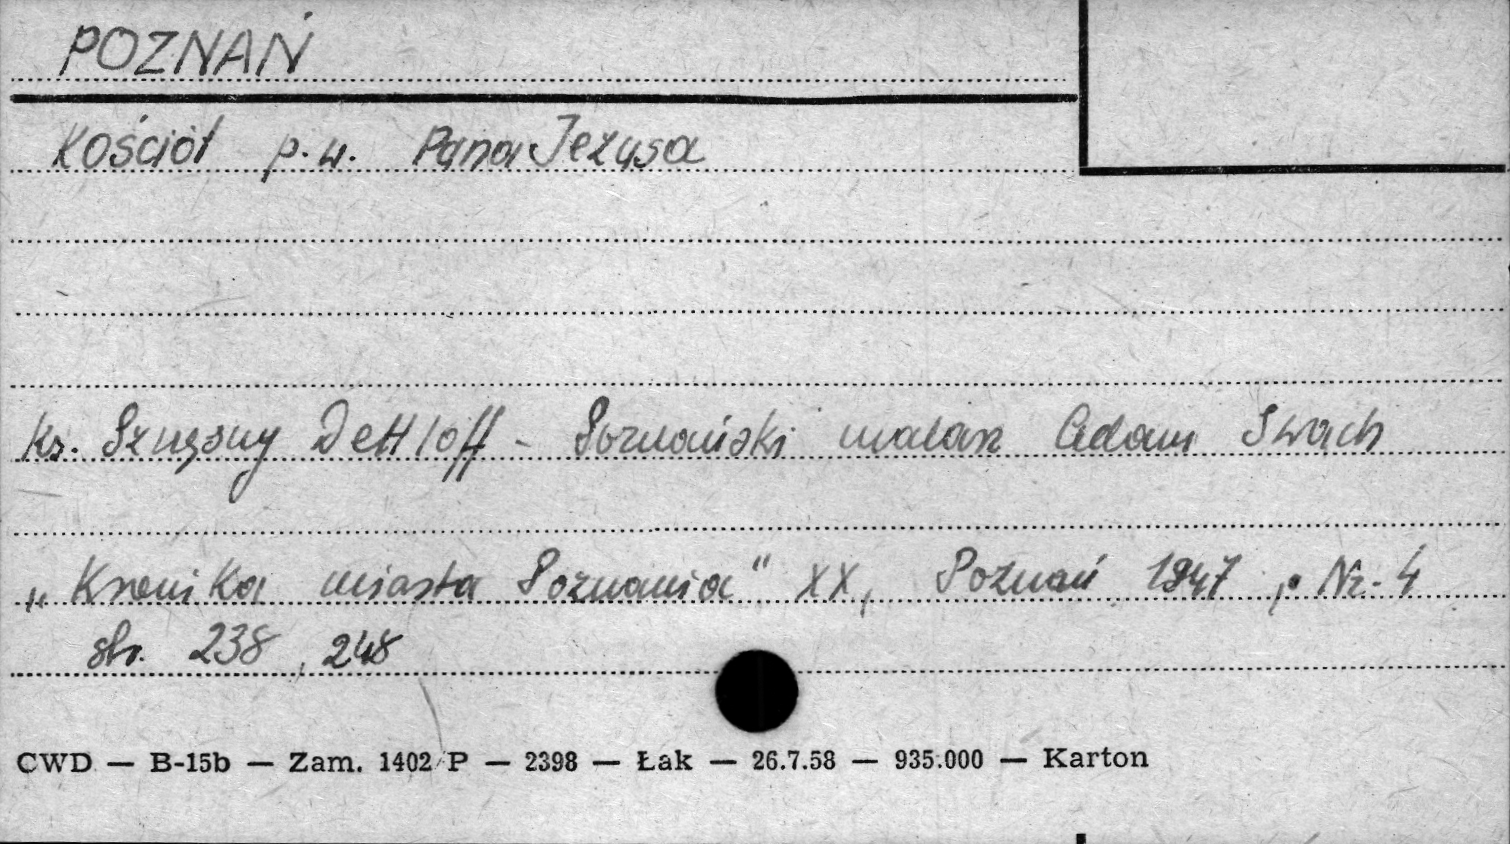 POZNAŃ
Kościół p.w. Pana Jezusa
ks. Szczęsny Dettloff - Poznański malarz Adam Swach
„Kronika miasta Poznania" XX, Poznań 1947, Nr. 4
str. 238, 248
CWD — B-15b — Zam. 1402/P — 2398 — Łak — 26.7.58 — 935.000 — Karton